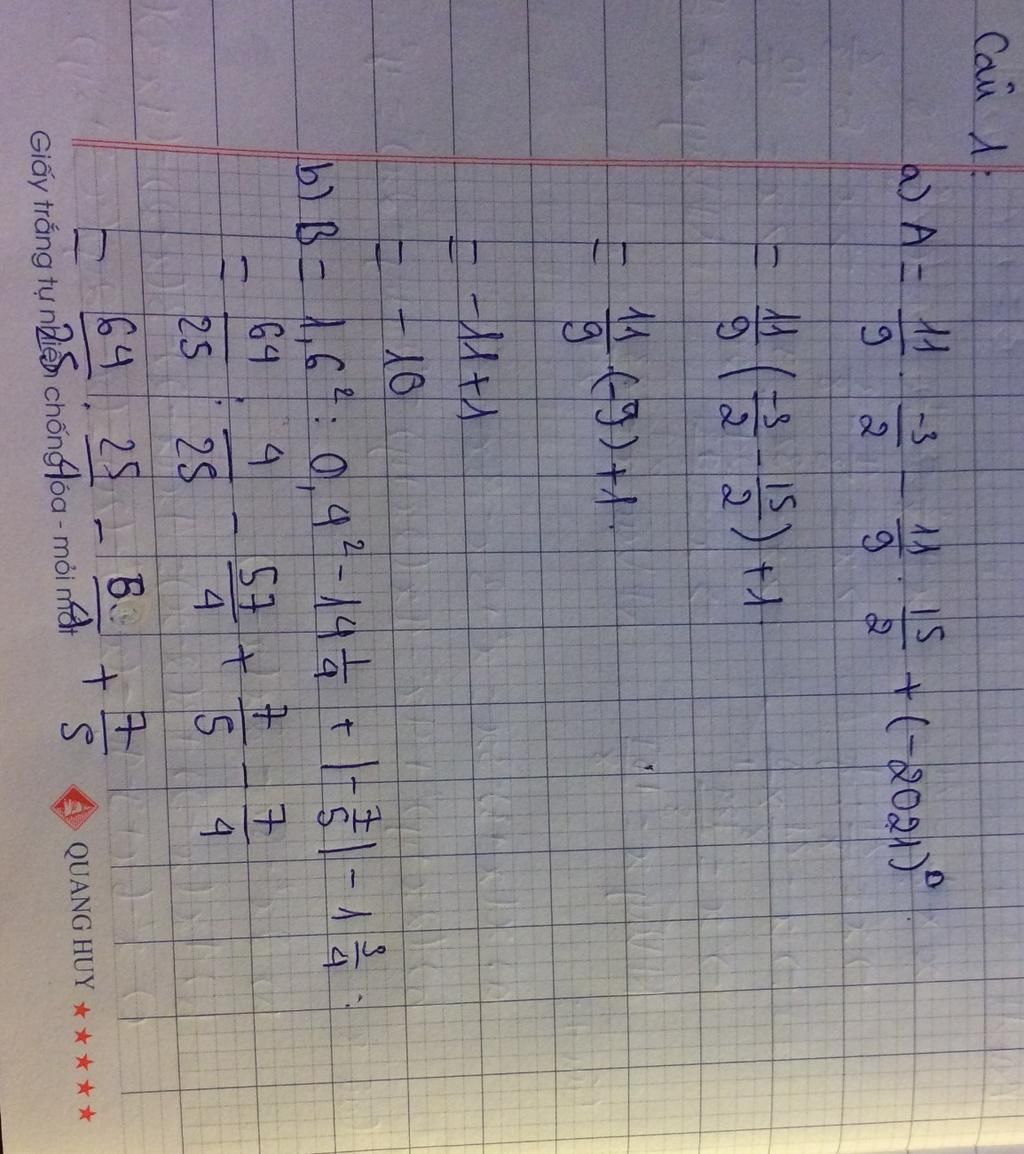 Câu 1:
a) A = 11/9 . -3/2 - 11/9 . 15/2 + (-2021)⁰
= 11/9 (-3/2 - 15/2) + 1
= 11/9 (-9) + 1
= -11 + 1
= -10
b) B = 1,6² : 0,4² - 14 1/4 + |-7/5| - 1 3/4
= 64/25 : 4/25 - 57/4 + 7/5 - 7/4
= 64/25 . 25/4 - + 7/5
Giấy trắng tự nhiên chống lóa - mỏi mắt QUANG HUY